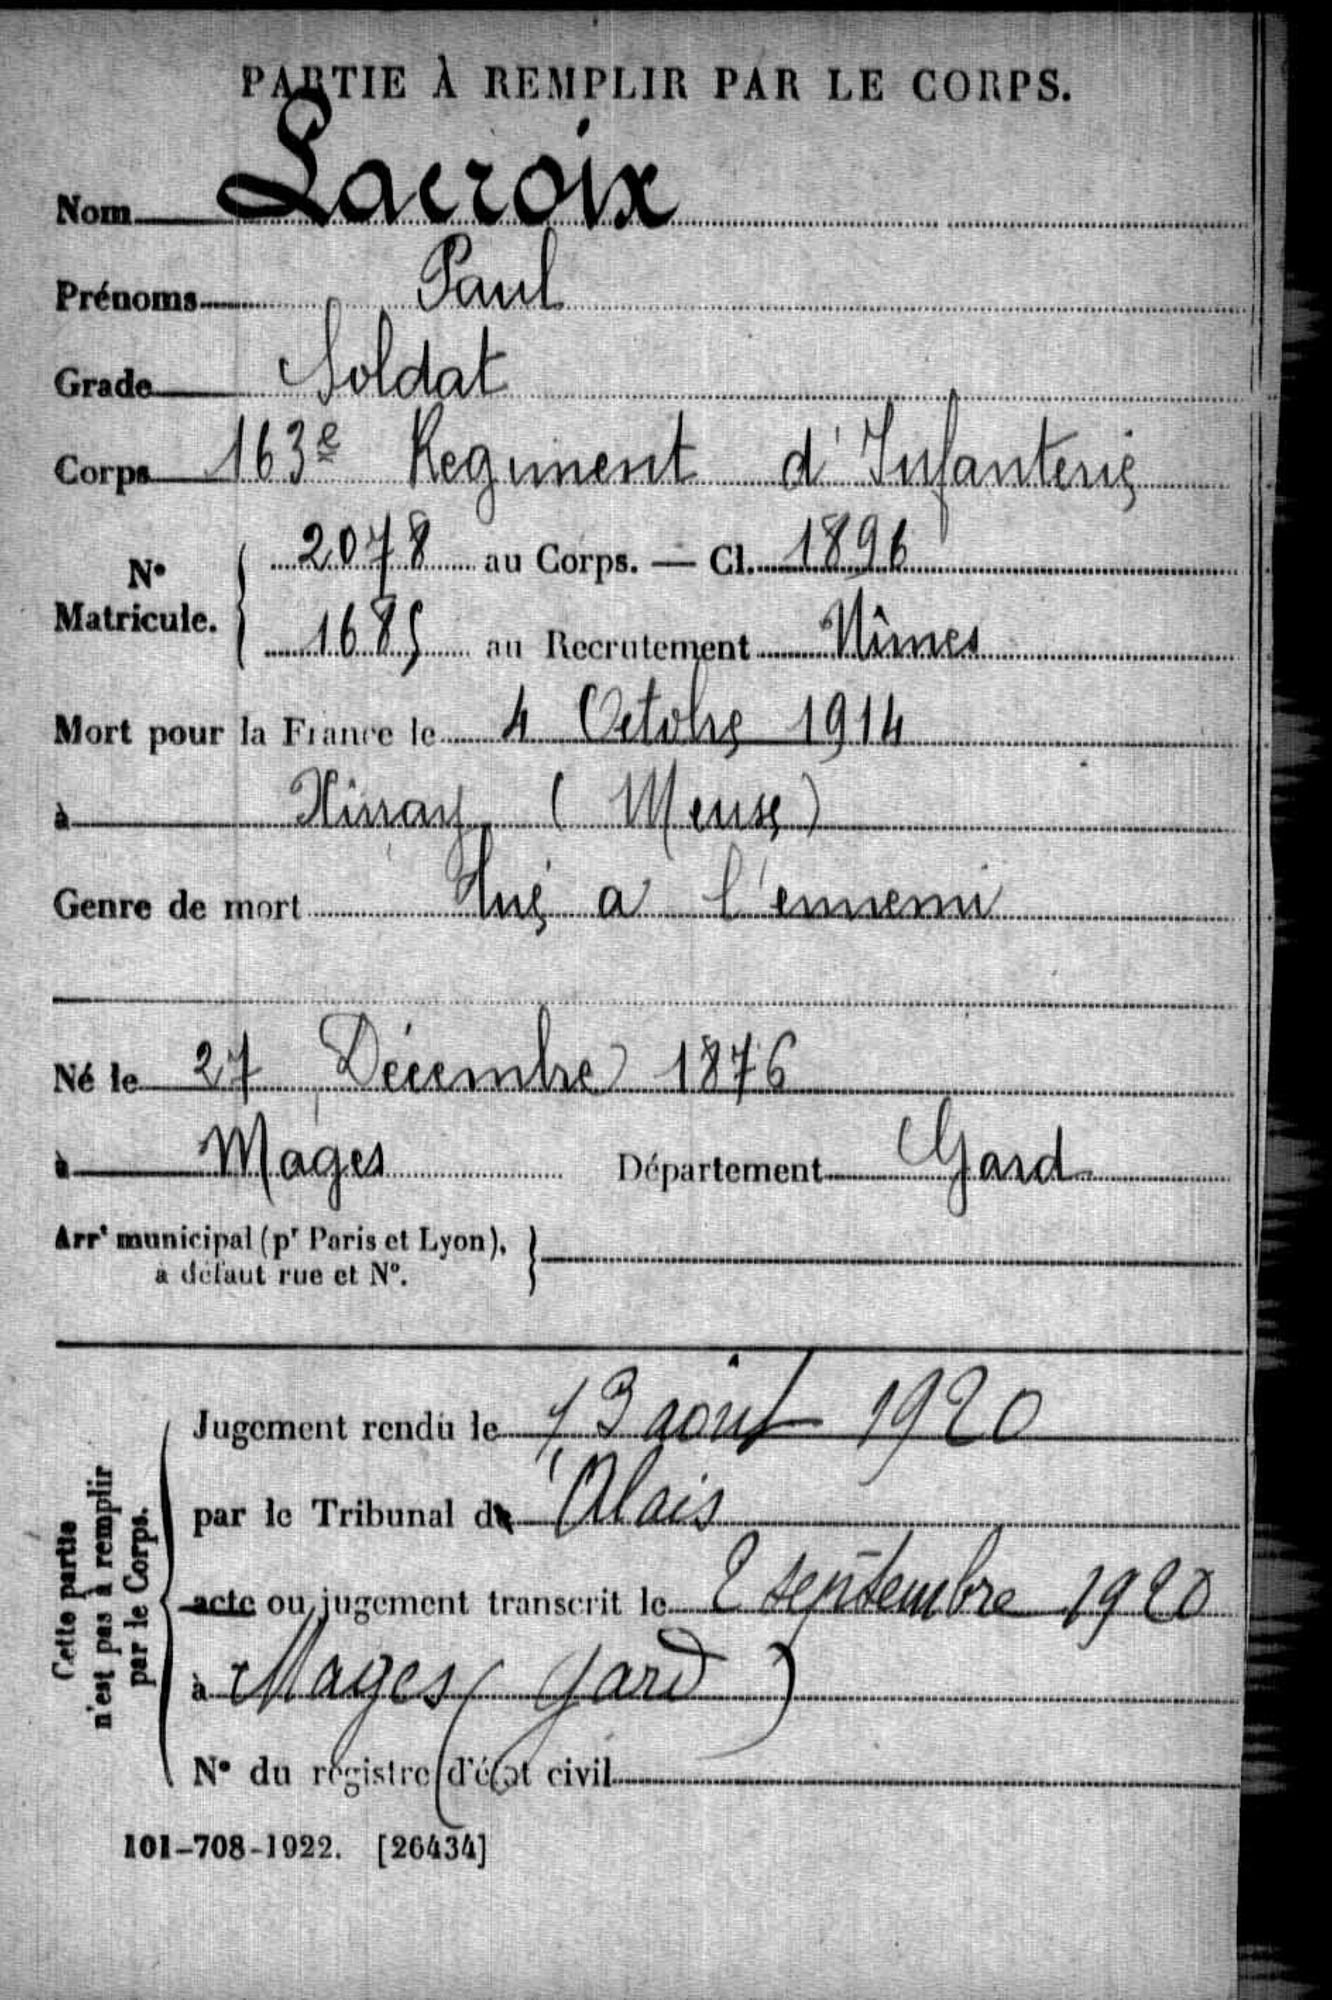 PARTIE À REMPLIR PAR LE CORPS.
Nom Lacroix
Prénoms Paul
Grade Soldat
Corps 163e Regiment d'Infanterie
N° Matricule. 2078 au Corps. — Cl. 1896
1685 au Recrutement Nîmes
Mort pour la France le 4 Octobre 1914
à Xivray (Meuse)
Genre de mort Tué a l'ennemi
Né le 27 Décembre 1876
à Mages Département Gard
Arrt municipal (pr Paris et Lyon),
à défaut rue et N°.
Cette partie
n'est pas à remplir
par le Corps.
Jugement rendu le 13 août 1920
par le Tribunal d'Alais
acte ou jugement transcrit le 2 septembre 1920
à Mages (Gard)
N° du registre d'état civil
101-708-1922. [26434]